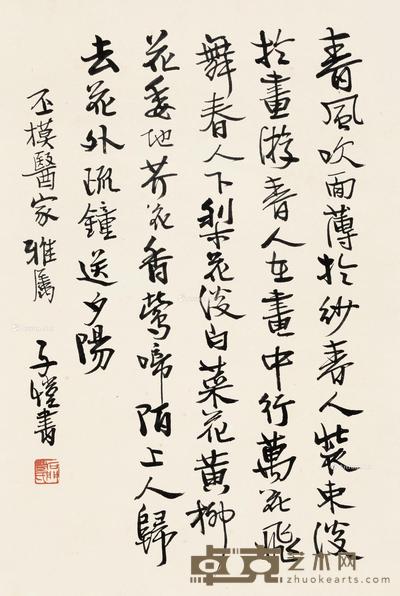 春風吹面薄於紗春人裝束淡
於畫游春人在畫中行萬花飛
舞春人下梨花淡白菜花黃柳
花委地芥花香鶯啼陌上人歸
去花外疏鐘送夕陽
丕模醫家雅屬
子愷書
卓克艺术网
zhuokearts.com